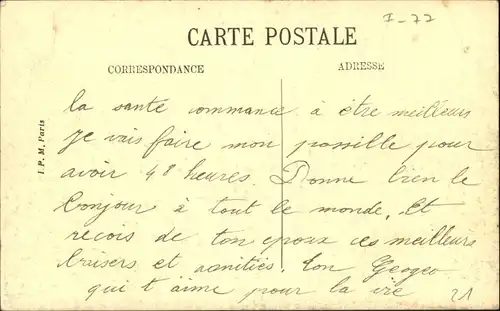 I-77
CARTE POSTALE
CORRESPONDANCE
ADRESSE
I. P. M. Paris
la santé commance à être meilleurs
je vais faire mon possible pour
avoir 48 heures. Donne bien le
bonjour à tout le monde. Et
recois de ton epoux ces meilleurs
baisers et amitiés. ton Geogeo
qui t'aime pour la vie
21